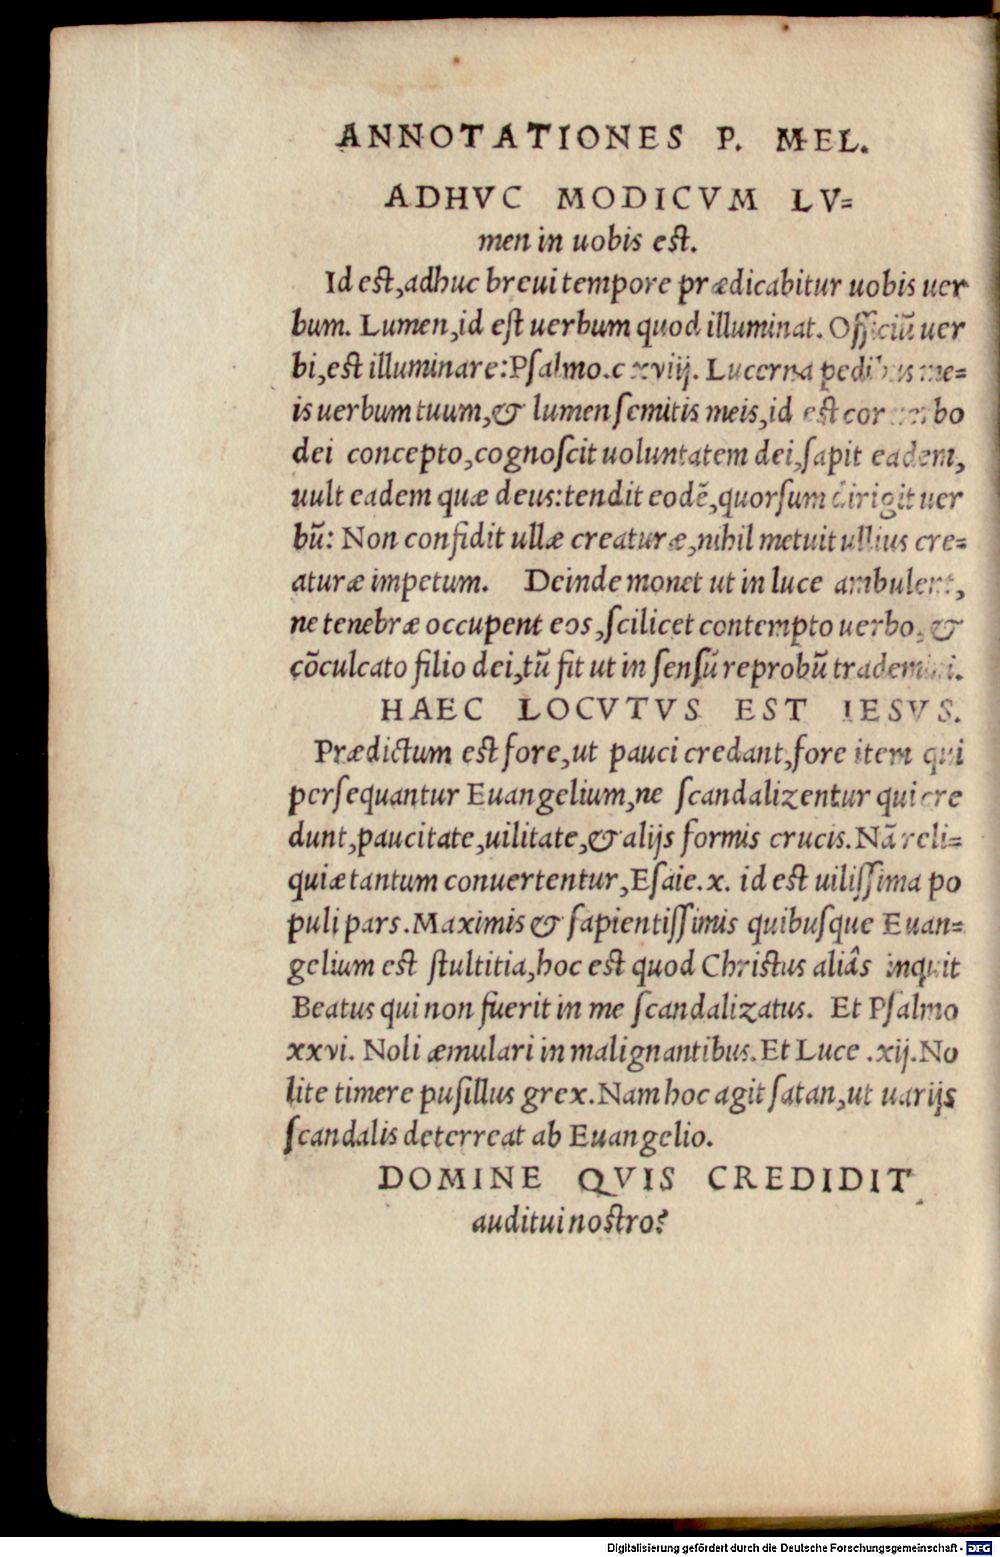 ANNOTATIONES P. MEL.
ADHVC MODICVM LV=
men in uobis est.
Id est, adhuc breui tempore prædicabitur uobis uer
bum. Lumen, id est uerbum quod illuminat. Officiũ uer
bi, est illuminare: Psalmo. c xviij. Lucerna pedibus me=
is uerbum tuum, & lumen semitis meis, id est cor uerbo
dei concepto, cognoscit uoluntatem dei, sapit eadem,
uult eadem quæ deus: tendit eodẽ, quorsum dirigit uer
bũ: Non confidit ullæ creaturæ, nihil metuit ullius cre=
aturæ impetum. Deinde monet ut in luce ambulent,
ne tenebræ occupent eos, scilicet contempto uerbo, &
cõculcato filio dei, tũ fit ut in sensũ reprobũ trademini.
HAEC LOCVTVS EST IESVS.
Prædictum est fore, ut pauci credant, fore item qui
persequantur Euangelium, ne scandalizentur qui cre
dunt, paucitate, uilitate, & alijs formis crucis. Nã reli=
quiæ tantum conuertentur, Esaie. x. id est uilissima po
puli pars. Maximis & sapientissimis quibusque Euan=
gelium est stultitia, hoc est quod Christus aliâs inquit
Beatus qui non fuerit in me scandalizatus. Et Psalmo
xxvi. Noli æmulari in malignantibus. Et Luce .xij. No
lite timere pusillus grex. Nam hoc agit satan, ut uarijs
scandalis deterreat ab Euangelio.
DOMINE QVIS CREDIDIT
auditui nostro?
Digitalisierung gefördert durch die Deutsche Forschungsgemeinschaft - DFG